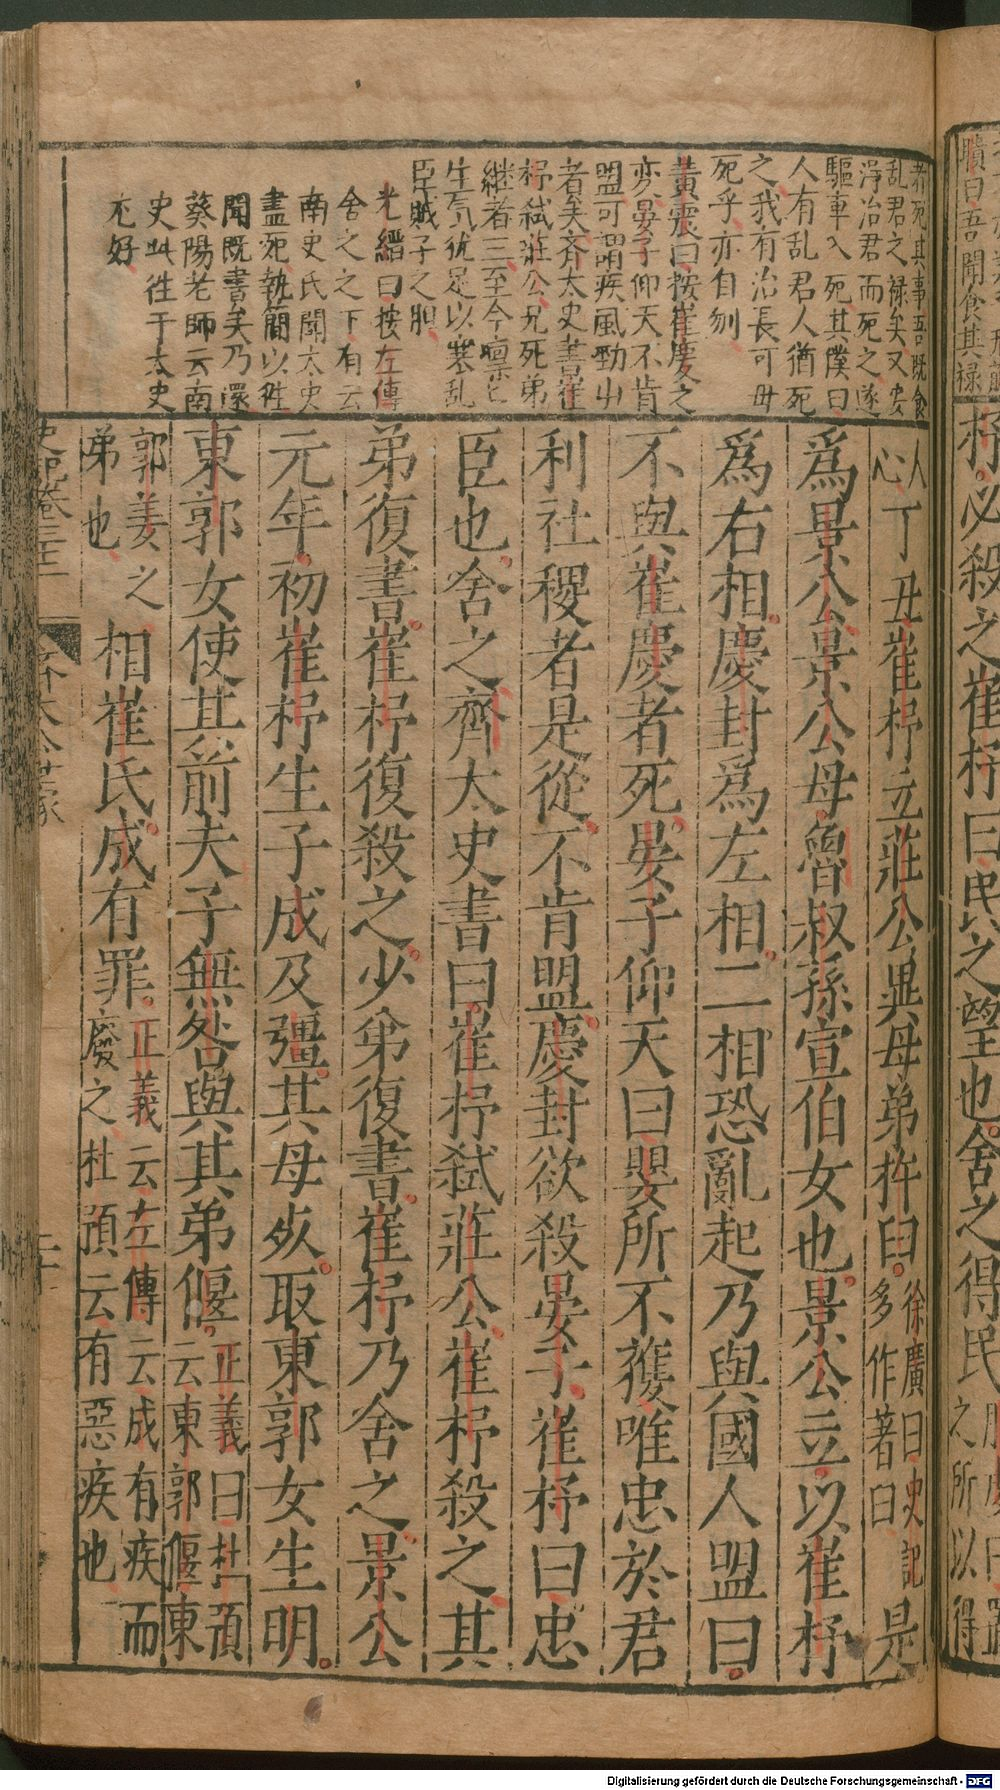 聵曰吾聞食其祿
杼必殺之崔杼曰民之望也舍之得民服虔曰置之所以得
者死其事吾既食
乱君之祿矣又安
得治君而死之遂
驅車入死其僕曰
人有乱君人猶死
之我有治長可毋
死乎亦自刎
黃震曰按崔慶之
変晏子仰天不肯
盟可謂疾風勁屮
者矣齐太史書崔
杼弑莊公兄死弟
継者三至今凛〻
生気犹足以寒乱
臣賊子之胆
光縉曰按左傳
舍之之下有云
南史氏聞太史
盡死執簡以徃
聞既書矣乃還
葵陽老師云南
史此徃于太史
尤好
人心丁丑崔杼立莊公異母弟杵臼徐廣曰史記多作著臼是
爲景公景公母魯叔孫宣伯女也景公立以崔杼
爲右相慶封爲左相二相恐亂起乃與國人盟曰
不與崔慶者死晏子仰天曰嬰所不獲唯忠於君
利社稷者是從不肯盟慶封欲殺晏子崔杼曰忠
臣也舍之齊太史書曰崔杼弑莊公崔杼殺之其
弟復書崔杼復殺之少弟復書崔杼乃舍之景公
元年初崔杼生子成及彊其母死取東郭女生明
東郭女使其前夫子無咎與其弟偃正義曰杜預云東郭偃東
郭姜之弟也相崔氏成有罪正義云左傳云成有疾而廢之杜預云有惡疾也
史記卷三十二
齊太公世家
二十
Digitalisierung gefördert durch die Deutsche Forschungsgemeinschaft - DFG